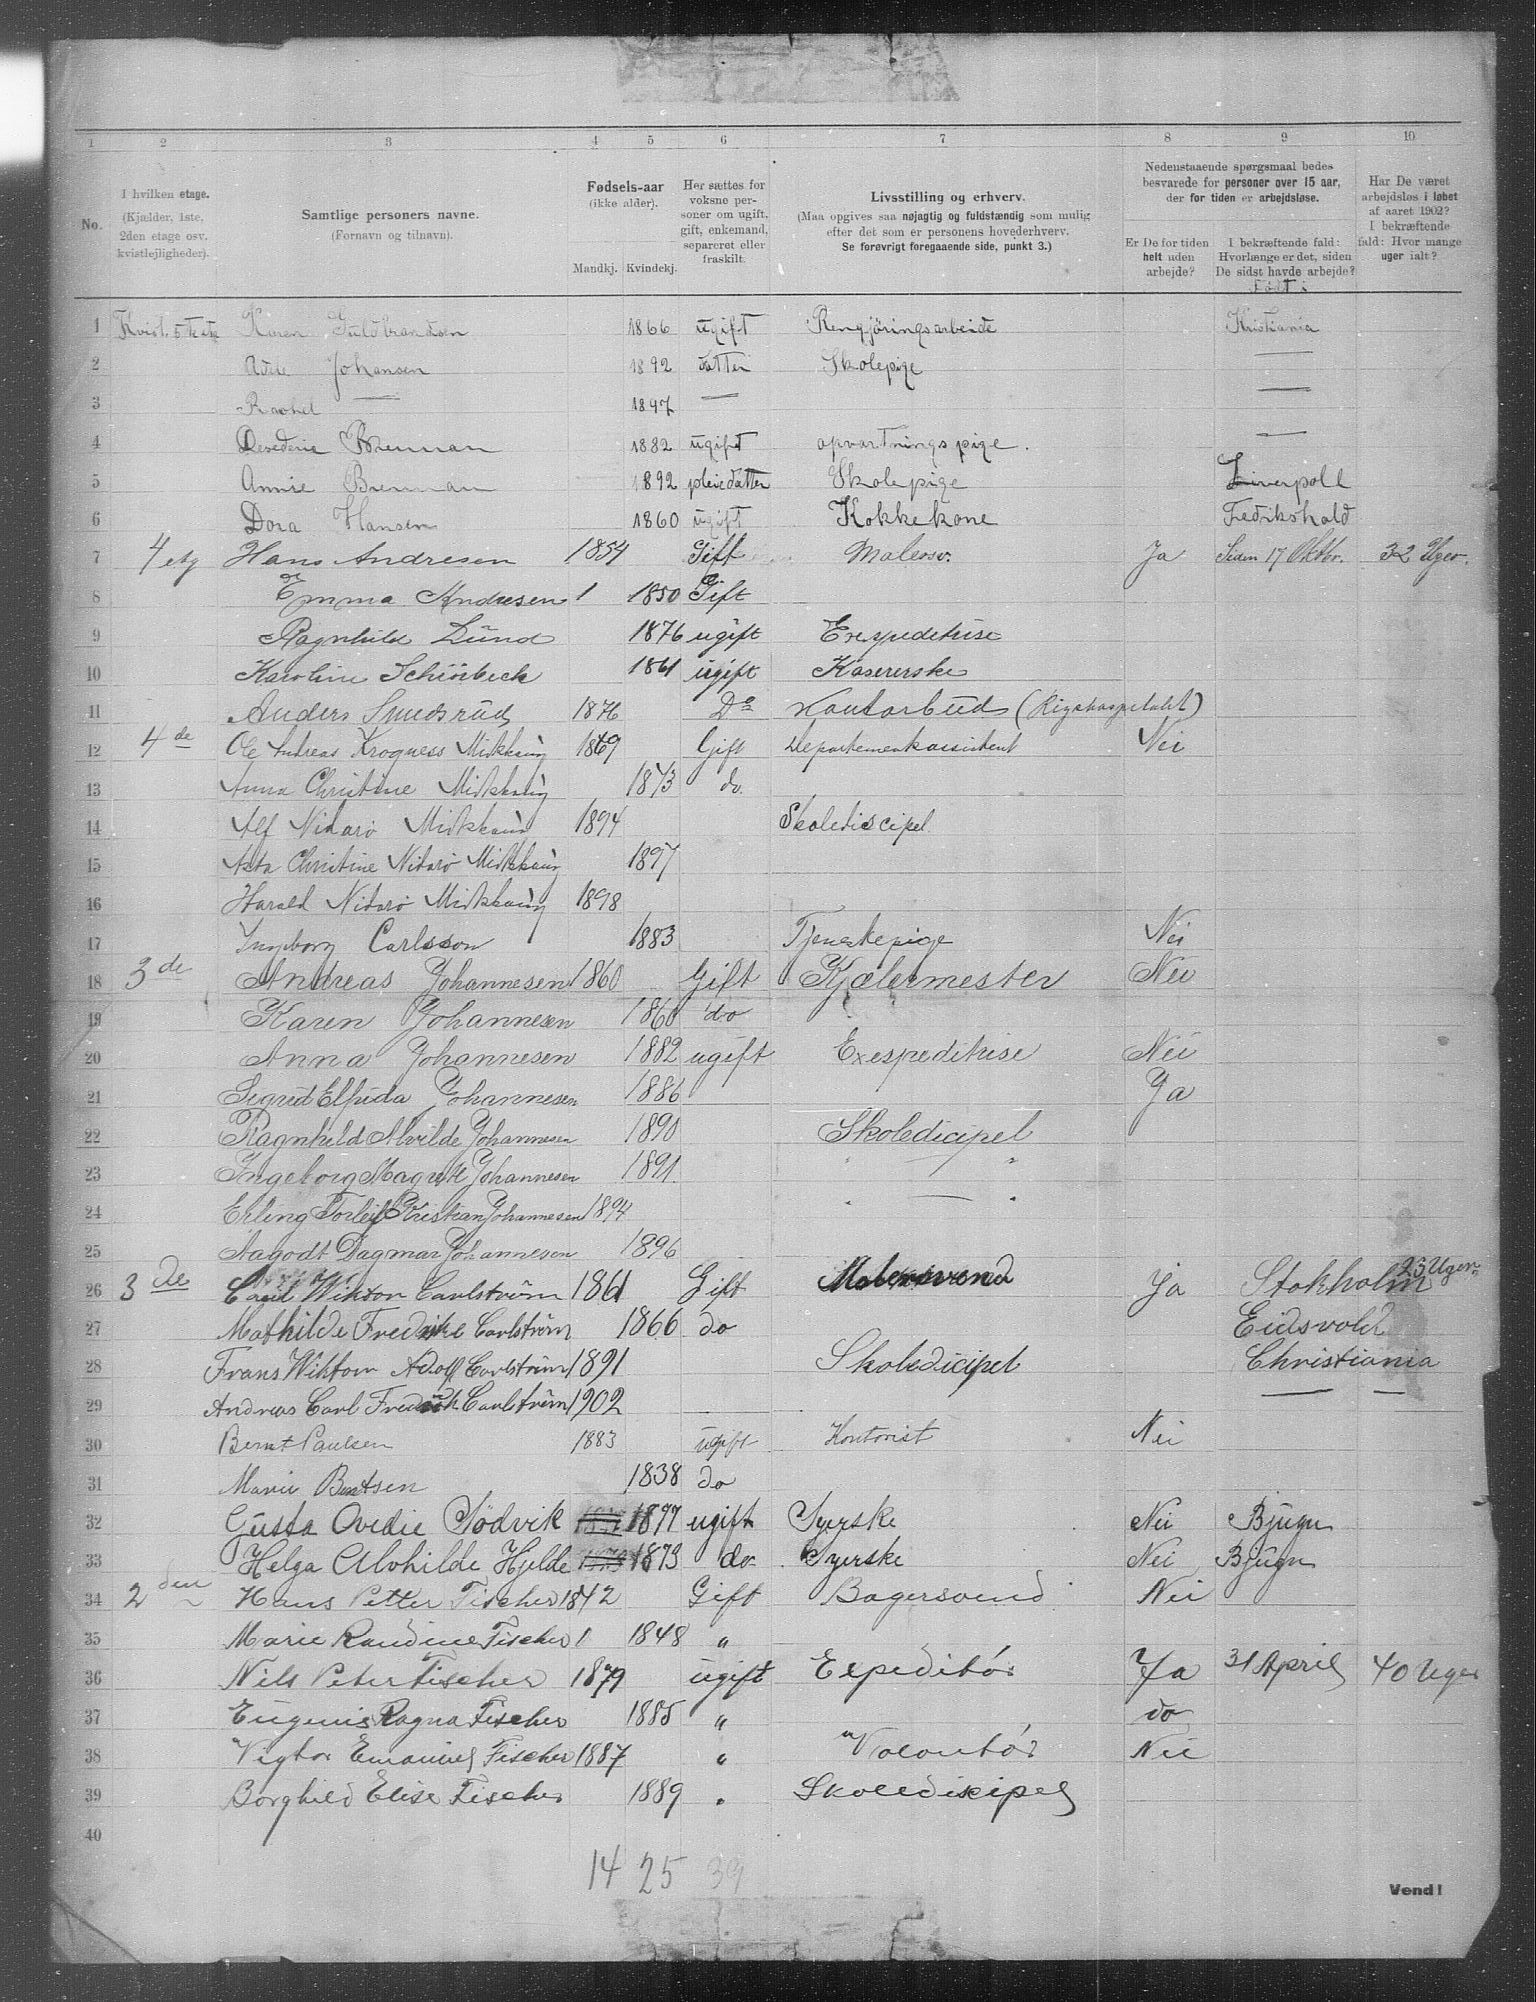 1 2 3 4 5 6 7 8 9 10
No.
I hvilken etage. (Kjælder, 1ste, 2den etage osv. kvistlejligheder).
Samtlige personers navne. (Fornavn og tilnavn).
Fødsels-aar (ikke alder). Mandkj. Kvindekj.
Her sættes for voksne personer om ugift, gift, enkemand, separeret eller fraskilt.
Livsstilling og erhverv. (Maa opgives saa nøjagtig og fuldstændig som mulig efter det som er personens hovederhverv. Se forøvrigt foregaaende side, punkt 3.)
Nedenstaaende spørgsmaal bedes besvarede for personer over 15 aar, der for tiden er arbejdsløse.
Er De for tiden helt uden arbejde?
I bekræftende fald: Hvorlænge er det, siden De sidst havde arbejde?
Født i
Har De været arbejdsløs i løbet af aaret 1902? I bekræftende fald: Hvor mange uger ialt?
1 Kvist 5te etg Karen Guldbrandsen 1866 ugift Rengjøringsarbeide Kristiania
2 Johansen 1892 datter Skolepige —
3 Rachel — 1897 — —
4 Brennan 1882 ugift opvartningspige. —
5 Annie Brennan 1892 pleiedatter Skolepige Liverpoll
6 Dora Hansen 1860 ugift Kokkekone Fedrikshald
7 4 etg Hans Andresen 1854 Gift Malersv. Ja Siden 17 Oktbr. 32 Uger.
8 Emma Andresen 1 1850 Gift
9 Ragnhild Lund 1876 ugift Exspeditrise
10 Karoline Schiörbeck 1861 ugift Kasererske
11 Anders Smedsrud 1876 Do Kontorbud (Rigshospitalet)
12 4 de Ole Andreas Krogness Midthaug 1869 Gift Departementsassistent Nei
13 Anna Christine Midthaug 1873 do.
14 Alf Nidarø Midthaug 1894 Skolediscipel
15 Asta Christine Nidarø Midthaug 1897
16 Harald Nidarø Midthaug 1898
17 Ingeborg Carlsson 1883 Tjenestepige Nei
18 3 de Andreas Johannesen 1860 Gift Kjælermester Nei
19 Karen Johannesen 1860 do
20 Anna Johannesen 1882 ugift Exespeditrise Nei
21 Sigrid Elfrida Johannesen 1886 Ja
22 Ragnhild Alvilde Johannesen 1890 Skoledicipel
23 Ingeborg Magrete Johannesen 1891 " — "
24 Erling Torleif Kristian Johannesen 1894 " — "
25 Aagodt Dagmar Johannesen 1896
26 3 de Carl Wiktor Carlström 1861 Gift Malersvend Ja Stokholm 23 Uger
27 Mathilde Fredrike Carlström 1866 do Eidsvold
28 Frans Wiktor Adolf Carlström 1891 Skoledicipel Christiania
29 Andreas Carl Fredrik Carlström 1902 — —
30 Bernt Paulsen 1883 ugift Kontorist Nei
31 Marie Berntsen 1838 do
32 Gusta Ovedie Sødvik 1877 ugift Syerske Nei Bjugn
33 Helga Alvhilde Hjelde 1873 do Syerske Nei Bjugn
34 2 den Hans Petter Fischer 1842 Gift Bagersvend Nei
35 Marie Randine Fischer 1 1848 "
36 Nils Peter Fischer 1879 ugift Expeditör Ja 31 April 40 Uger
37 Eugenie Ragna Fischer 1885 " do
38 Vigtor Emanuel Fischer 1887 " Volontör Nei
39 Borghild Elise Fischer 1889 " Skoledisipel
40
14 25 39
Vend!